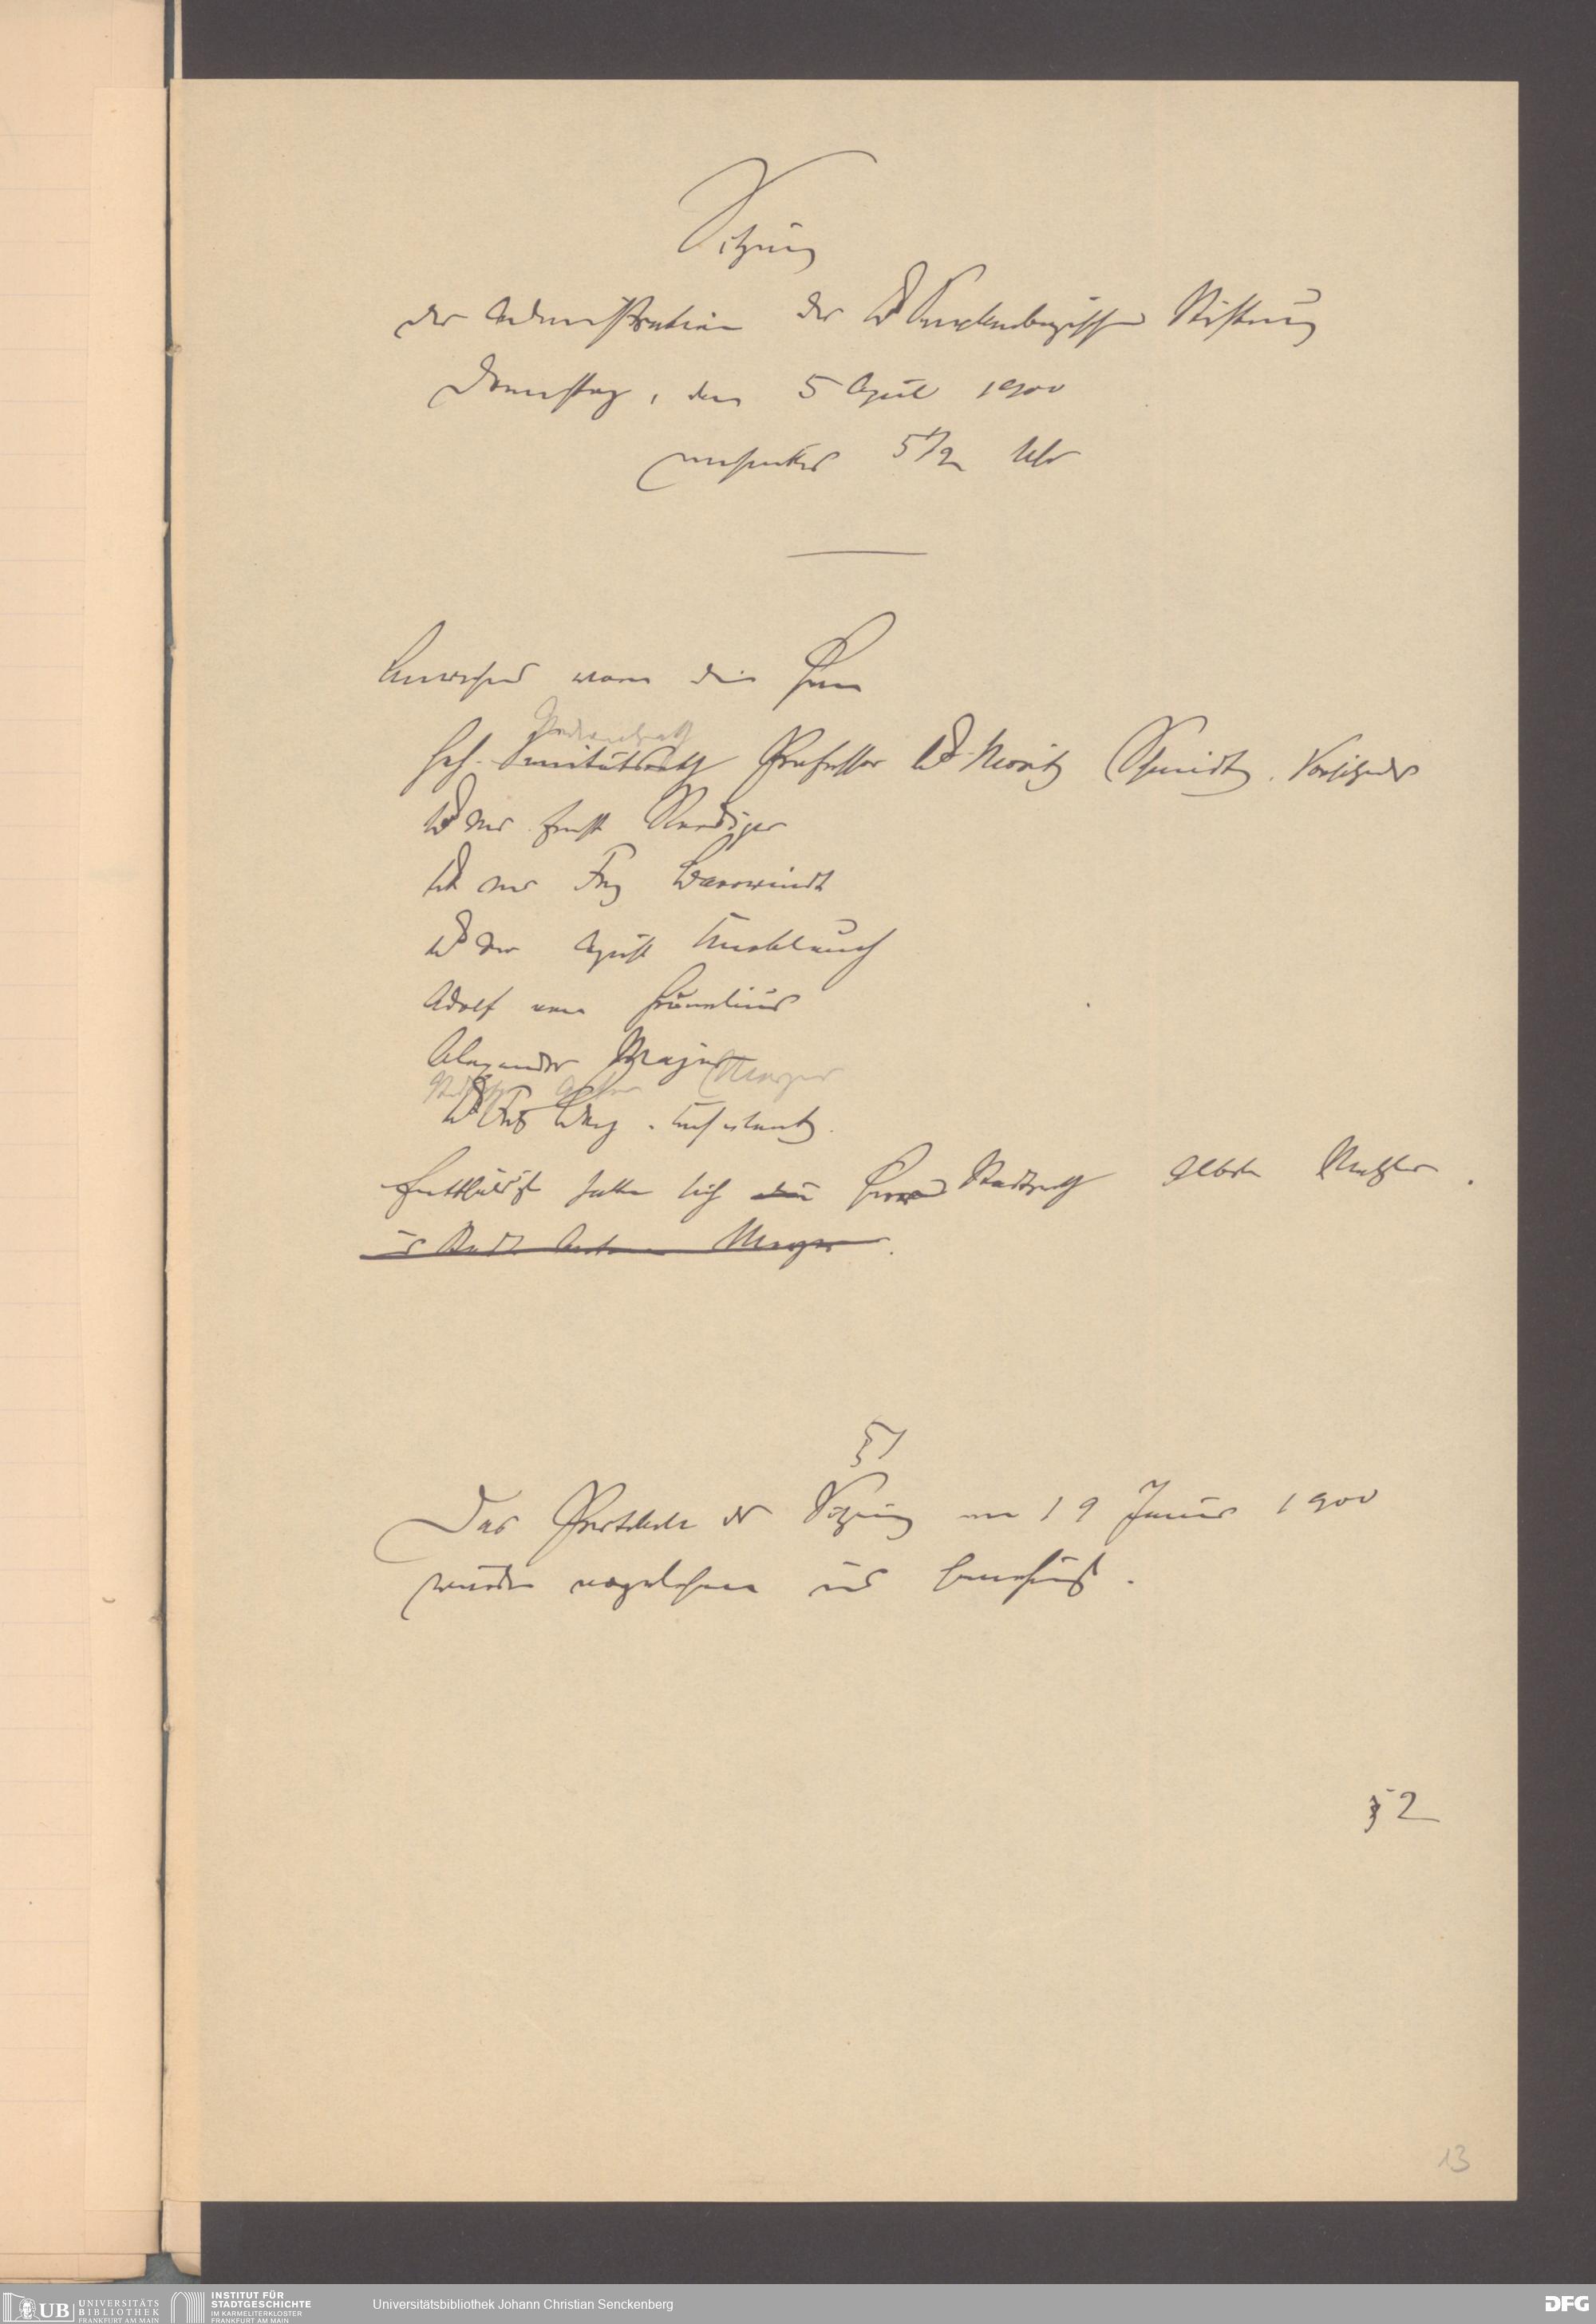 Sitzung
der Administration der Dr Senckenbergischen Stiftung
Donnerstag, den 5 April 1900
nachmittags 5 1/2 Uhr
Anwesend waren die Herren
Medicinalrath
Geh. Sanitätsrath Professor Dr Moritz Schmidt, Vorsitzender
Dr med Ernst Roediger
Dr med Fritz Bärwindt
Dr med August Knoblauch
Adolf von Grunelius
Alexander Majer
Stadtrath Anton Meyer
Dr Fritz Berg, Consulent
Entschuldigt hatte sich die Herr Stadtrath Albert Metzler.
u Stadtr Anton Meyer.
§1
Das Protokoll der Sitzung vom 19 Januar 1900
wurde vorgelesen und genehmigt.
§2
13
UB UNIVERSITÄTS
BIBLIOTHEK
FRANKFURT AM MAIN
INSTITUT FÜR
STADTGESCHICHTE
IM KARMELITERKLOSTER
FRANKFURT AM MAIN
Universitätsbibliothek Johann Christian Senckenberg
DFG